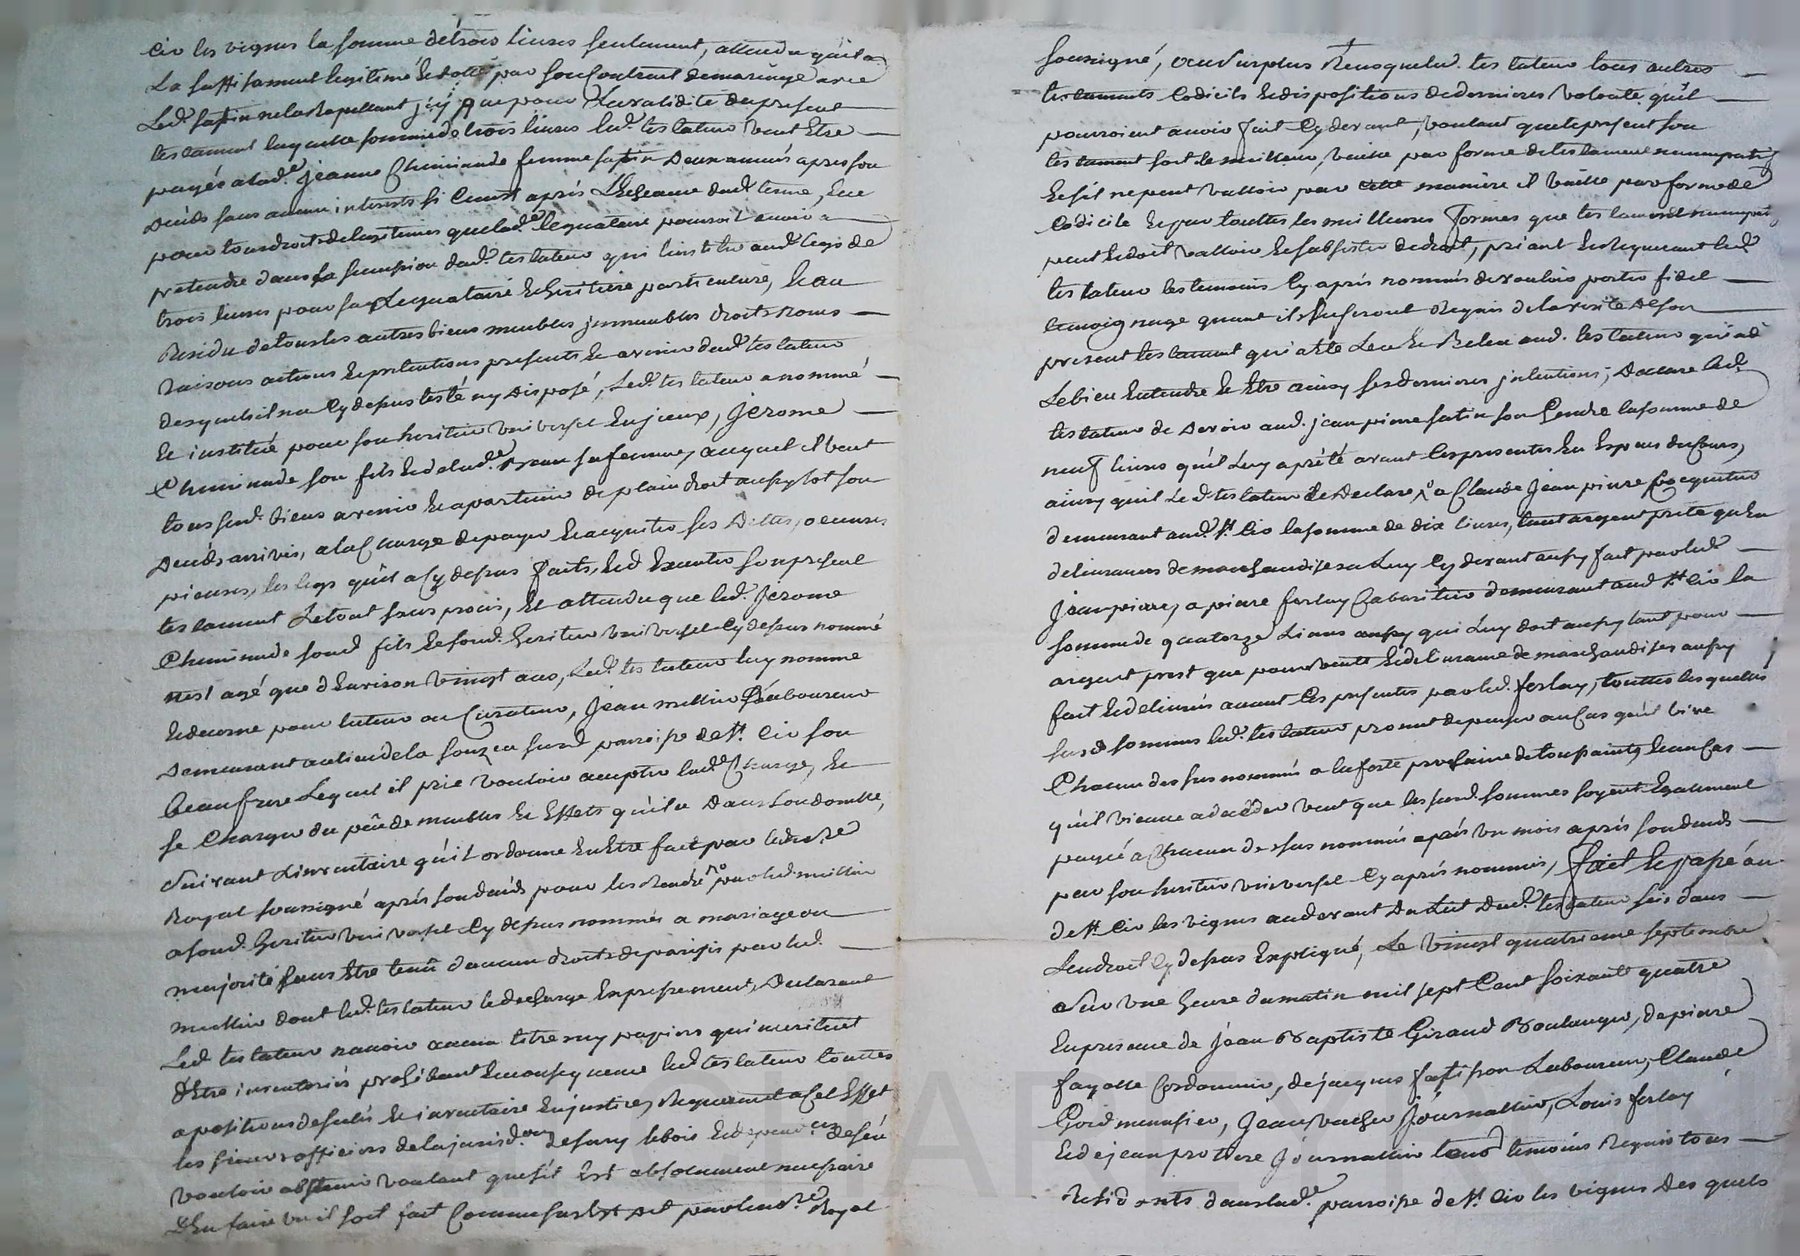 Cir les vignes la somme de trois livres seulement, attendu qu'il a
La suffisament legitimé et dotté par son Contract de mariage avec
Led. satin ne la Rapellant icy que pour La validité du present
testament laquelle somme de trois livres led. testateur veut Etre
payée a lad.e jeanne Cheminade femme satin deux années apres son
deceds sans aucun interests si Ce n'est aprés L'Echeance dud. terme, Et ce
pour tous droits de legitimes que lad.e legataire pourroit avoir a
pretendre dans sa succession dud. testateur qui l'institue aud. legs de
trois livres pour sa Legataire et heritiere particuliere, Et au
Residu de tous les autres biens meubles immeubles droits noms
raisons actions Et pretentions presents Et avenir dud. testateur
desquels il na Cy depus testé ny disposé, Led. testateur a nommé
Et institué pour son heritier universel Enjeux, jerome
Cheminade son fils Et de lad.e sa femme, auquel il veut
tous sesd. biens avenir Et apartenir de plain droit aussytot son
deceds arrivés, a la Charge de payer Et acquitter ses dettes, oeuvres
pieuses, les legs qu'il a Cy depus faits, Et d'Executer son present
testament Le tout sans procés, Et attendu que led. jerome
Cheminade sond. fils Et sond. heritier universel Cy depus nommé
n'est agé que d'Environ vingt ans, Led. testateur luy nomme
Et decerne pour tuteur ou Curateur, jean mettier Laboureur
demeurant au lieu de la susd. parroisse de St. Cir son
beaufrere Lequel il prie vouloir accepter lad.e Charge, Et
se Charger du peu de meubles Et Effets qu'il a dans son domicille,
suivant L'inventaire qu'il ordonne En Etre fait par le no.re
Royal soussigné aprés son deceds pour les Rendre par led. mettier
a sond. heritier universel Cy depus nommés a mariage ou
majorité sans Etre tenû d'aucun droits de par led.
mettier dont led. testateur le decharge Expressement, declarant
Led. testateur n'avoir aucun titre ny papiers qui meritent
d'Etre inventoriés prohibant En Consequence led. testateur touttes
apositions de scelés Et inventaire En justice, Requerant a Cet Effet
les sieurs officiers de la jurisd.on de sury lebois Et de s'en
vouloir abstenir voulant que s'il Est absolument necessaire
d'En faire un il soit fait Comme sus Est dit par led. no.re Royal
soussigné, au surplus Revoque led. testateur tous autres
testaments Codicils Et dispositions de dernieres volonté qu'il
pourroient avoir fait Cy devant, voulant que le present son
testament soit le meilleur, vaille par forme de testament nuncupatif
Et s'il ne peut valloir par cette maniere il vaille par forme de
Codicile Et par touttes les meilleures formes que testament nuncupatif
peut Et doit valloir Et subsister de droit, priant Et Requerant led.
testateur les temoins Cy aprés nommés de vouloir porter fidel
temoignage quant ils En seront Requis de la verité de son
present testament qui a Eté Leu Et Releu aud. testateur qui a dé
Le bien Entendre Et Etre ainsy ses dernieres intentions; declare led.
testateur de devoir aud. jean pierre satin son Gendre la somme de
neuf livres qu'il luy a prêté avant Ces presentes En Especes du Cours,
ainsy qu'il Led. testateur Le declare, a Claude jean pierre
demeurant aud. St. Cir la somme de dix livres, tant argent preté qu'En
delivrances de marchandises a Luy Cy devant aussy fait par led.
jean pierre, a pierre ferlay Cabaretier demeurant aud. St. Cir la
somme de quatorze Livres aussy qui Luy doit aussy tant pour
argent prest que pour vente Et delivrance de marchandises aussy
fait Et delivrés avant Ces presentes par led. ferlay, touttes lesquelles
susd. sommes led. testateur promet de payer au Cas qu'il vive
Chacun des sus nommés a la feste prochaine de toussaints, Et en Cas
qu'il vienne a decéder veut que les susd. sommes soyent Egalement
payée a Chacun de sus nommés aprés un mois aprés son deceds
par son heritier universel Cy aprés nommés, fait Et passé au
de St. Cir les vignes au devant du Lict dud. testateur sis dans
L'endroit Cy depus Expliqué, Le vingt quatrieme septembre
sur une heure du matin mil sept Cent soixante quatre
En presence de jean Baptiste Giraud Boulanger, de pierre
fayolle Cordonnier, de jacques Laboureur, Claude
Gord menusier, jean vacher journallier, Louis ferlay
Et de jean journallier tous temoins Requis tous
Residents dans lad.e parroisse de St. Cir les vignes des quels